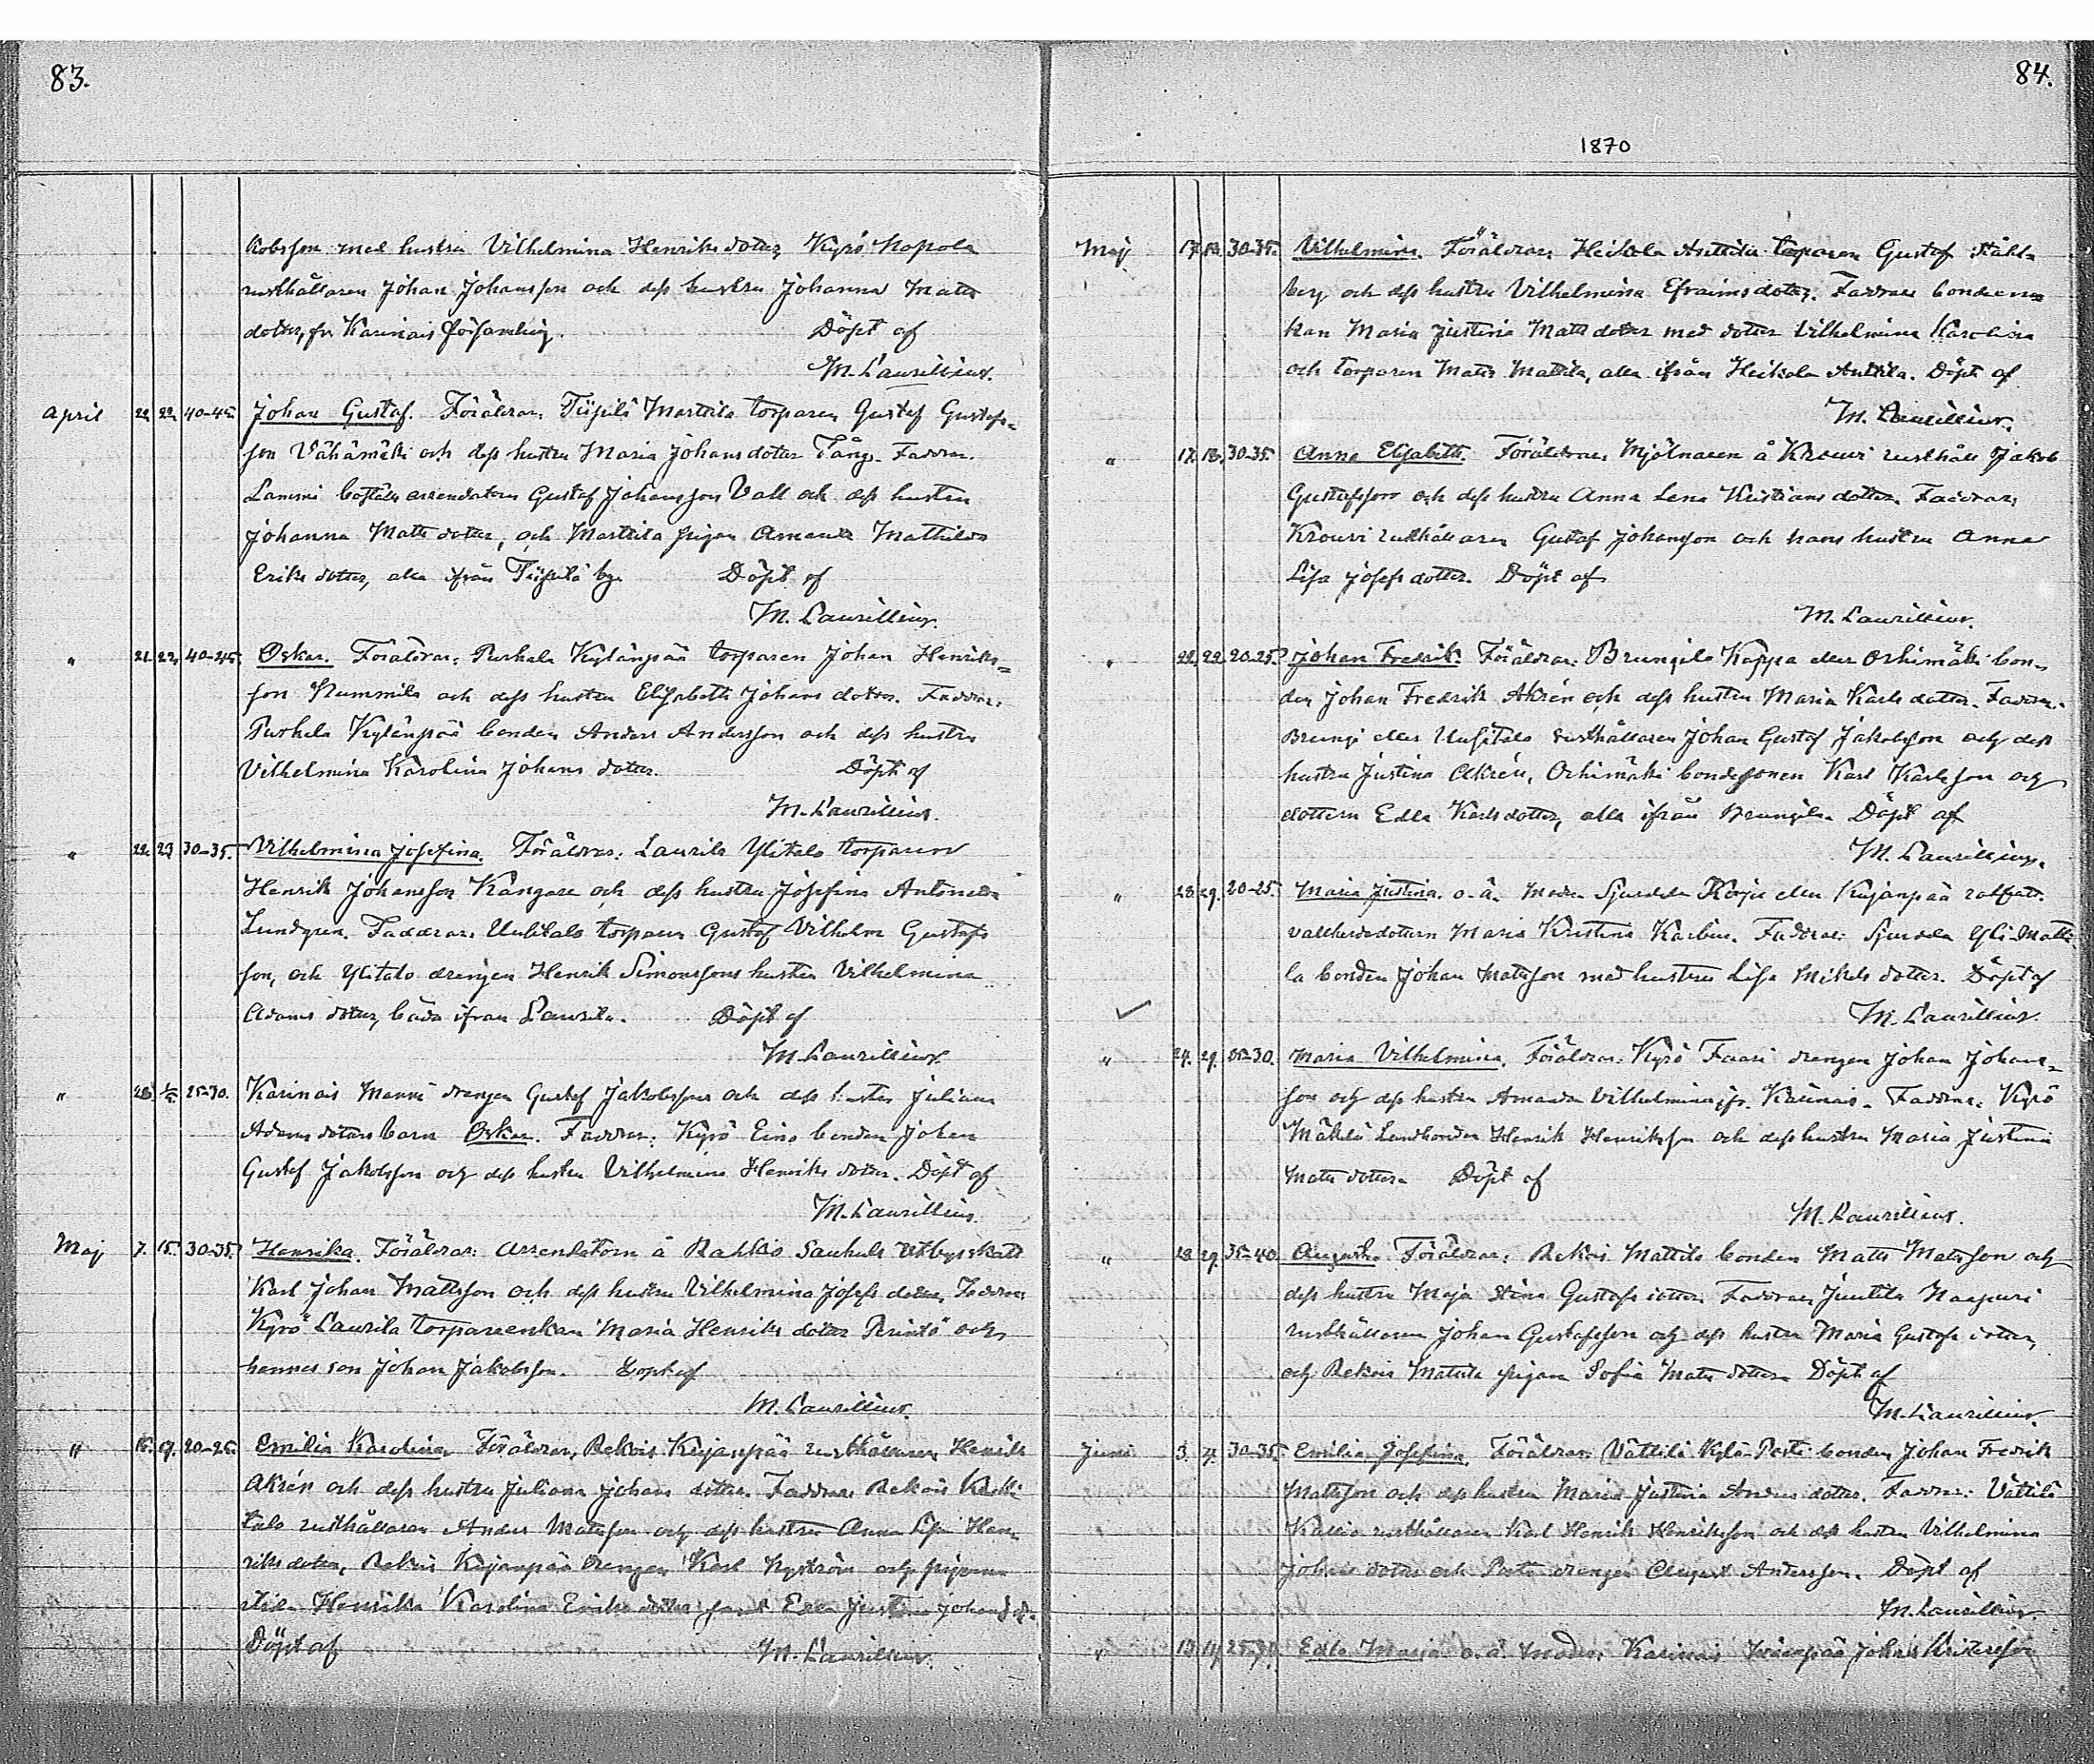 83.
kobsson med hustru Vilhelmina Henriksdotter, Kyrö Nopola
rusthållaren Johan Johansson och dess hustru Johanna Matts
dotter, fr Karinais församling. Döpt af
M. Laurillius.
April 22. 22. 40-45. Johan Gustaf. Föräldrar: Tiipilä Marttila torparen Gustaf Gustafs-
son Vähämäki och dess hustru Maria Johansdotter Tång. Faddrar:
Lammi boställs arrendatorn Gustaf Johansson Vall och dess hustru
Johanna Matts dotter, och Marttila pigan Amanda Mathilda
Eriks dotter, alla ifrån Tiipilä by. Döpt af
M. Laurillius.
" 21. 22. 40-45. Oskar. Föräldrar: Purhala Kylänpää torparen Johan Henriks-
son Nummila och dess hustru Elisabeth Johans dotter. Faddrar:
Purhala Kylänpää bonden Anders Andersson och dess hustru
Vilhelmina Karolina Johans dotter. Döpt af
M. Laurillius.
" 22. 23. 30-35. Vilhelmina Josefina. Föräldrar: Laurila Ylitalo torparen
Henrik Johansson Kangare och dess hustru Josefina
Lundgren. Faddrar: Uulitalo torparen Gustaf Vilhelm Gustafs
son, och Ylitalo drengen Henrik Simonssons hustru Vilhelmina
Adams dotter, båda ifrån Laurila. Döpt af
M. Laurillius.
" 28. 1/5. 25-30. Karinais Manni drengen Gustaf Jakobsson och dess hustru Juliana
Adams dotters barn Oskar. Faddrar: Kyrö Eino bonden Johan
Gustaf Jakobsson och dess hustru Vilhelmina Henriks dotter. Döpt af
M. Laurillius.
Maj 7. 15. 30-35. Henrika. Föräldrar: Arrendatorn å Rahkio Sauhula utbysskatt
Karl Johan Mattsson och dess hustru Vilhelmina Josefs dotter. Faddrar:
Kyrö Laurila torpareenkan Maria Henriks dotter Perintö och
hennes son Johan Jakobsson. Döpt af
M. Laurillius.
" 15. 19. 20-25. Emilia Karolina. Föräldrar: Rekois Kujanpää rusthållaren Henrik
Akrén och dess hustru Juliana Johans dotter. Faddrar: Rekois
talo rusthållaren Anders Mattsson och dess hustru Anna Lisa Hen
riks dotter, Rekois Kujanpää drengen Karl Nyström och pigorna
Henrika Karolina Eriks dotter samt Eva Justina Johansd.
Döpt af M. Laurillius.
84.
1870
Maj 17. 18. 30-35. Vilhelmina. Föräldrar: Heikola Anttila torparen Gustaf Ståhl-
berg och dess hustru Vilhelmina Efraimsdotter. Faddrar: bondeen
kan Maria Justina Matts dotter med dotter Vilhelmina Karolina
och torparen Matts Mattila, alla ifrån Heikola Anttila. Döpt af
M. Laurillius.
" 17. 18. 30-35. Anna Elisabeth. Föräldrar: Mjölnaren å Krouvi rusthåll Jakob
Gustafsson och dess hustru Anna Lena Kristians dotter. Faddrar:
Krouvi rusthållaren Gustaf Johansson och hans hustru Anna
Lisa Josefs dotter. Döpt af
M. Laurillius.
" 22. 22. 20-25. Johan Fredrik. Föräldrar: Brungila Kappa eller Orhimäki bon-
den Johan Fredrik Akrén och dess hustru Maria Karls dotter. Faddrar:
Brungi eller Uusitalo rusthållaren Johan Gustaf Jakobsson och dess
hustru Justina Akrén, Orhimäki bondesonen Karl Karlsson och
dottern Edla Karlsdotter, alla ifrån Brungila. Döpt af
M. Laurillius.
" 28. 29. 20-25. Maria Justina. o. ä. Moder: Sjurdela Korpi eller Kujanpää
Maria Kristina. Faddrar: Sjurdela Yli-Matti-
la bonden Johan Mattsson med hustru Lisa Mikels dotter. Döpt af
M. Laurillius.
" 24. 29. 25-30. Maria Vilhelmina. Föräldrar: Kyrö Faari drengen Johan Johans-
son och dess hustru Amanda Vilhelmina, fr. Karinais. Faddrar: Kyrö
Mäkelä landbonden Henrik Henriksson och dess hustru Maria Justina
Matts dotter. Döpt af
M. Laurillius.
" 28. 29. 35-40. Augusta. Föräldrar: Rekois Mattila bonden Matts Mattsson och
dess hustru Maja Stina Gustafs dotter. Faddrar: Juntila Naapuri
rusthållaren Johan Gustafsson och dess hustru Maria Gustafs dotter,
och Rekois Mattila pigan Sofia Matts dotter. Döpt af
M. Laurillius.
Juni 3. 4. 30-35. Emilia Josefina. Föräldrar: Vättilä Kylä-Perti bonden Johan Fredrik
Mattsson och dess hustru Maria Justina Anders dotter. Faddrar: Vättilä
Kallio rusthållaren Karl Henrik Henriksson och dess hustru Vilhelmina
Johans dotter och Perti drengen August Andersson. Döpt af
M. Laurillius.
" 13. 14. 25-30. Edla Maria o. ä. Moder: Karinais